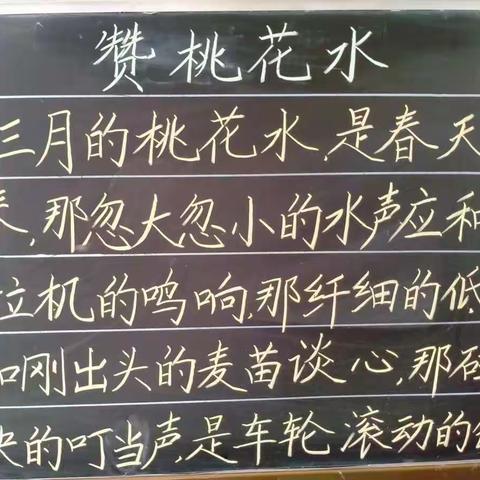 赞桃花水
三月的桃花水,是春天
,那忽大忽小的水声应和
机的鸣响,那纤细的低
和刚出头的麦苗谈心,那
的叮当声,是车轮滚动的